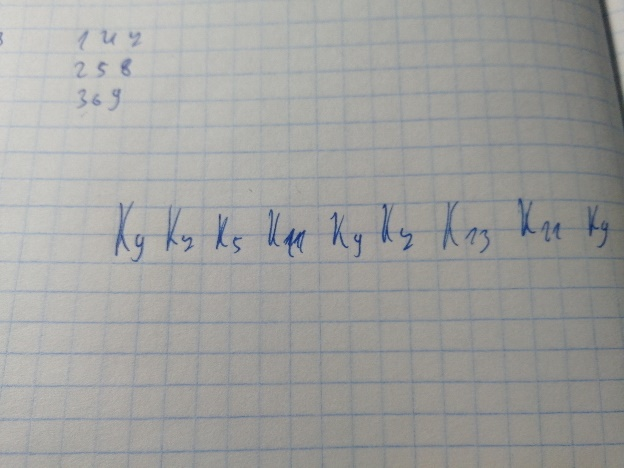 1 4 7
2 5 8
3 6 9
K9 K7 K5 K11 K9 K7 K13 K11 K9